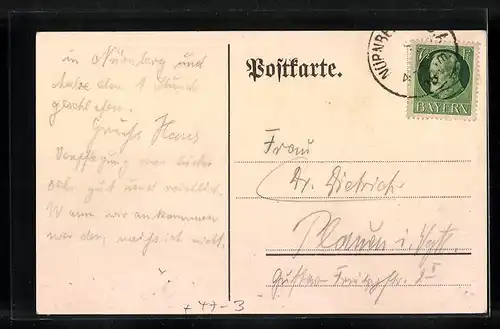 in Nürnberg und
1 Stunde
geschlafen.
Gruss Hans
Verpflegung war bisher
sehr gut und reichlich.
Wann wir ankommen
werden, weiss ich nicht.
Postkarte.
NÜRNBE
BAYERN
Frau
Dr. Dietrich
Plauen i. Vgtl.
Gustav Freitagstr.
+47-3